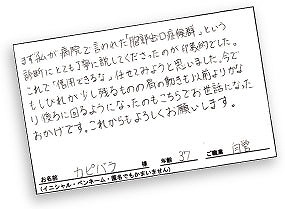 まず私が病院で言われた「胸郭出口症候群」という
診断にとても丁寧に説してくださったのが印象的でした。
これで「信用できるな」任せてみようと思いました。今で
もしびれが少し残るものの肩の動きも以前よりかな
り後ろに回るようになったのもこちらでお世話になった
おかげです。これからもよろしくお願いします。
お名前 カピバラ 様 年齢 37 ご職業 自営
(イニシャル・ペンネーム・匿名でもかまいません)